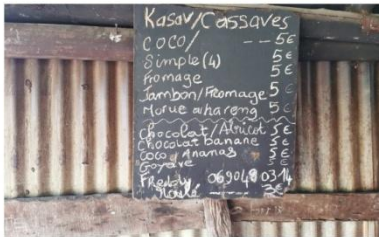 Kasav/Cassaves
COCO/ -- 5€
Simple(4) 5€
Fromage 5€
Jambon/Fromage 5€
Morue ou hareng 5€
Chocolat/Abricot 5€
Chocolat banane 5€
Coco/Ananas 5€
Goyave 5€
FReddy 0690480314
---- 3€